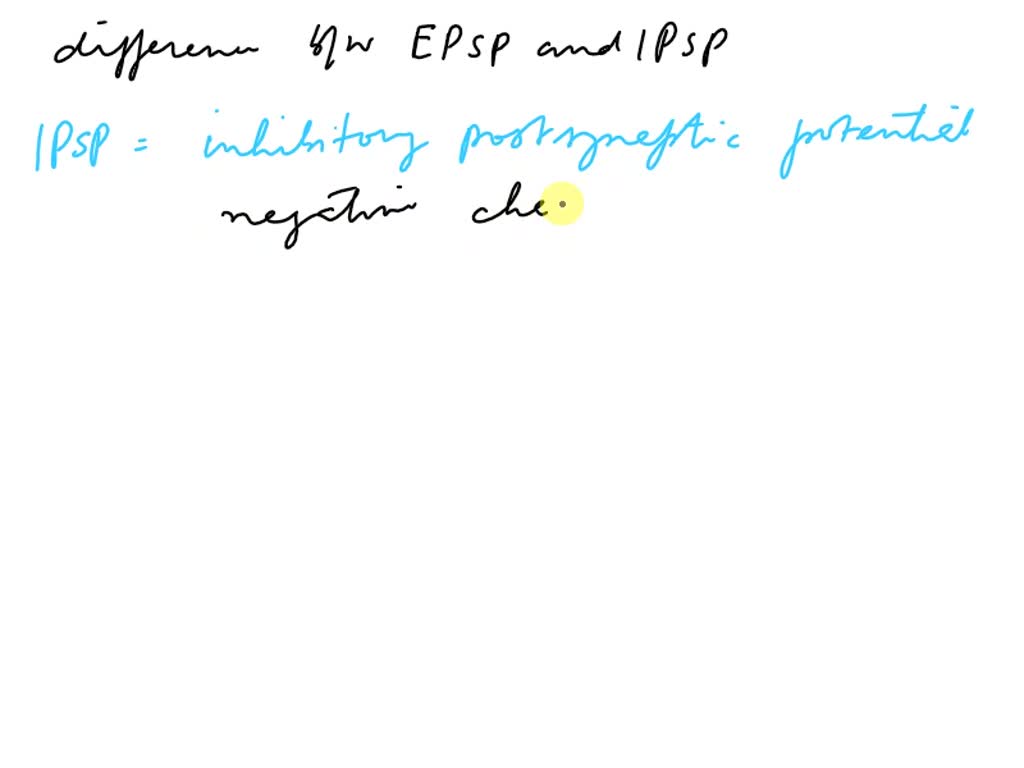 difference b/w EPSP and IPSP
IPSP = inhibitory postsynaptic potential
negative che